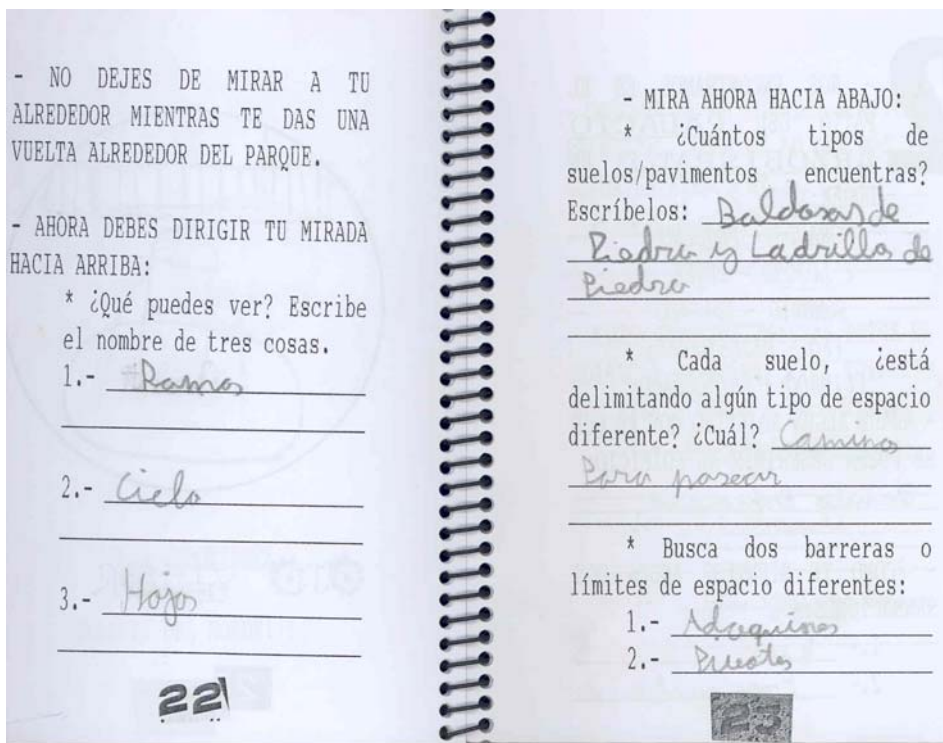 - NO DEJES DE MIRAR A TU
ALREDEDOR MIENTRAS TE DAS UNA
VUELTA ALREDEDOR DEL PARQUE.
- AHORA DEBES DIRIGIR TU MIRADA
HACIA ARRIBA:
* ¿Qué puedes ver? Escribe
el nombre de tres cosas.
1.- Ramas
2.- Cielo
3.- Hojas
22
- MIRA AHORA HACIA ABAJO:
* ¿Cuántos tipos de
suelos/pavimentos encuentras?
Escríbelos: Baldosas de
Piedra y Ladrillos de
Piedra
* Cada suelo, ¿está
delimitando algún tipo de espacio
diferente? ¿Cuál? Caminos
Para pasear
* Busca dos barreras o
límites de espacio diferentes:
1.- Adoquines
2.-
23